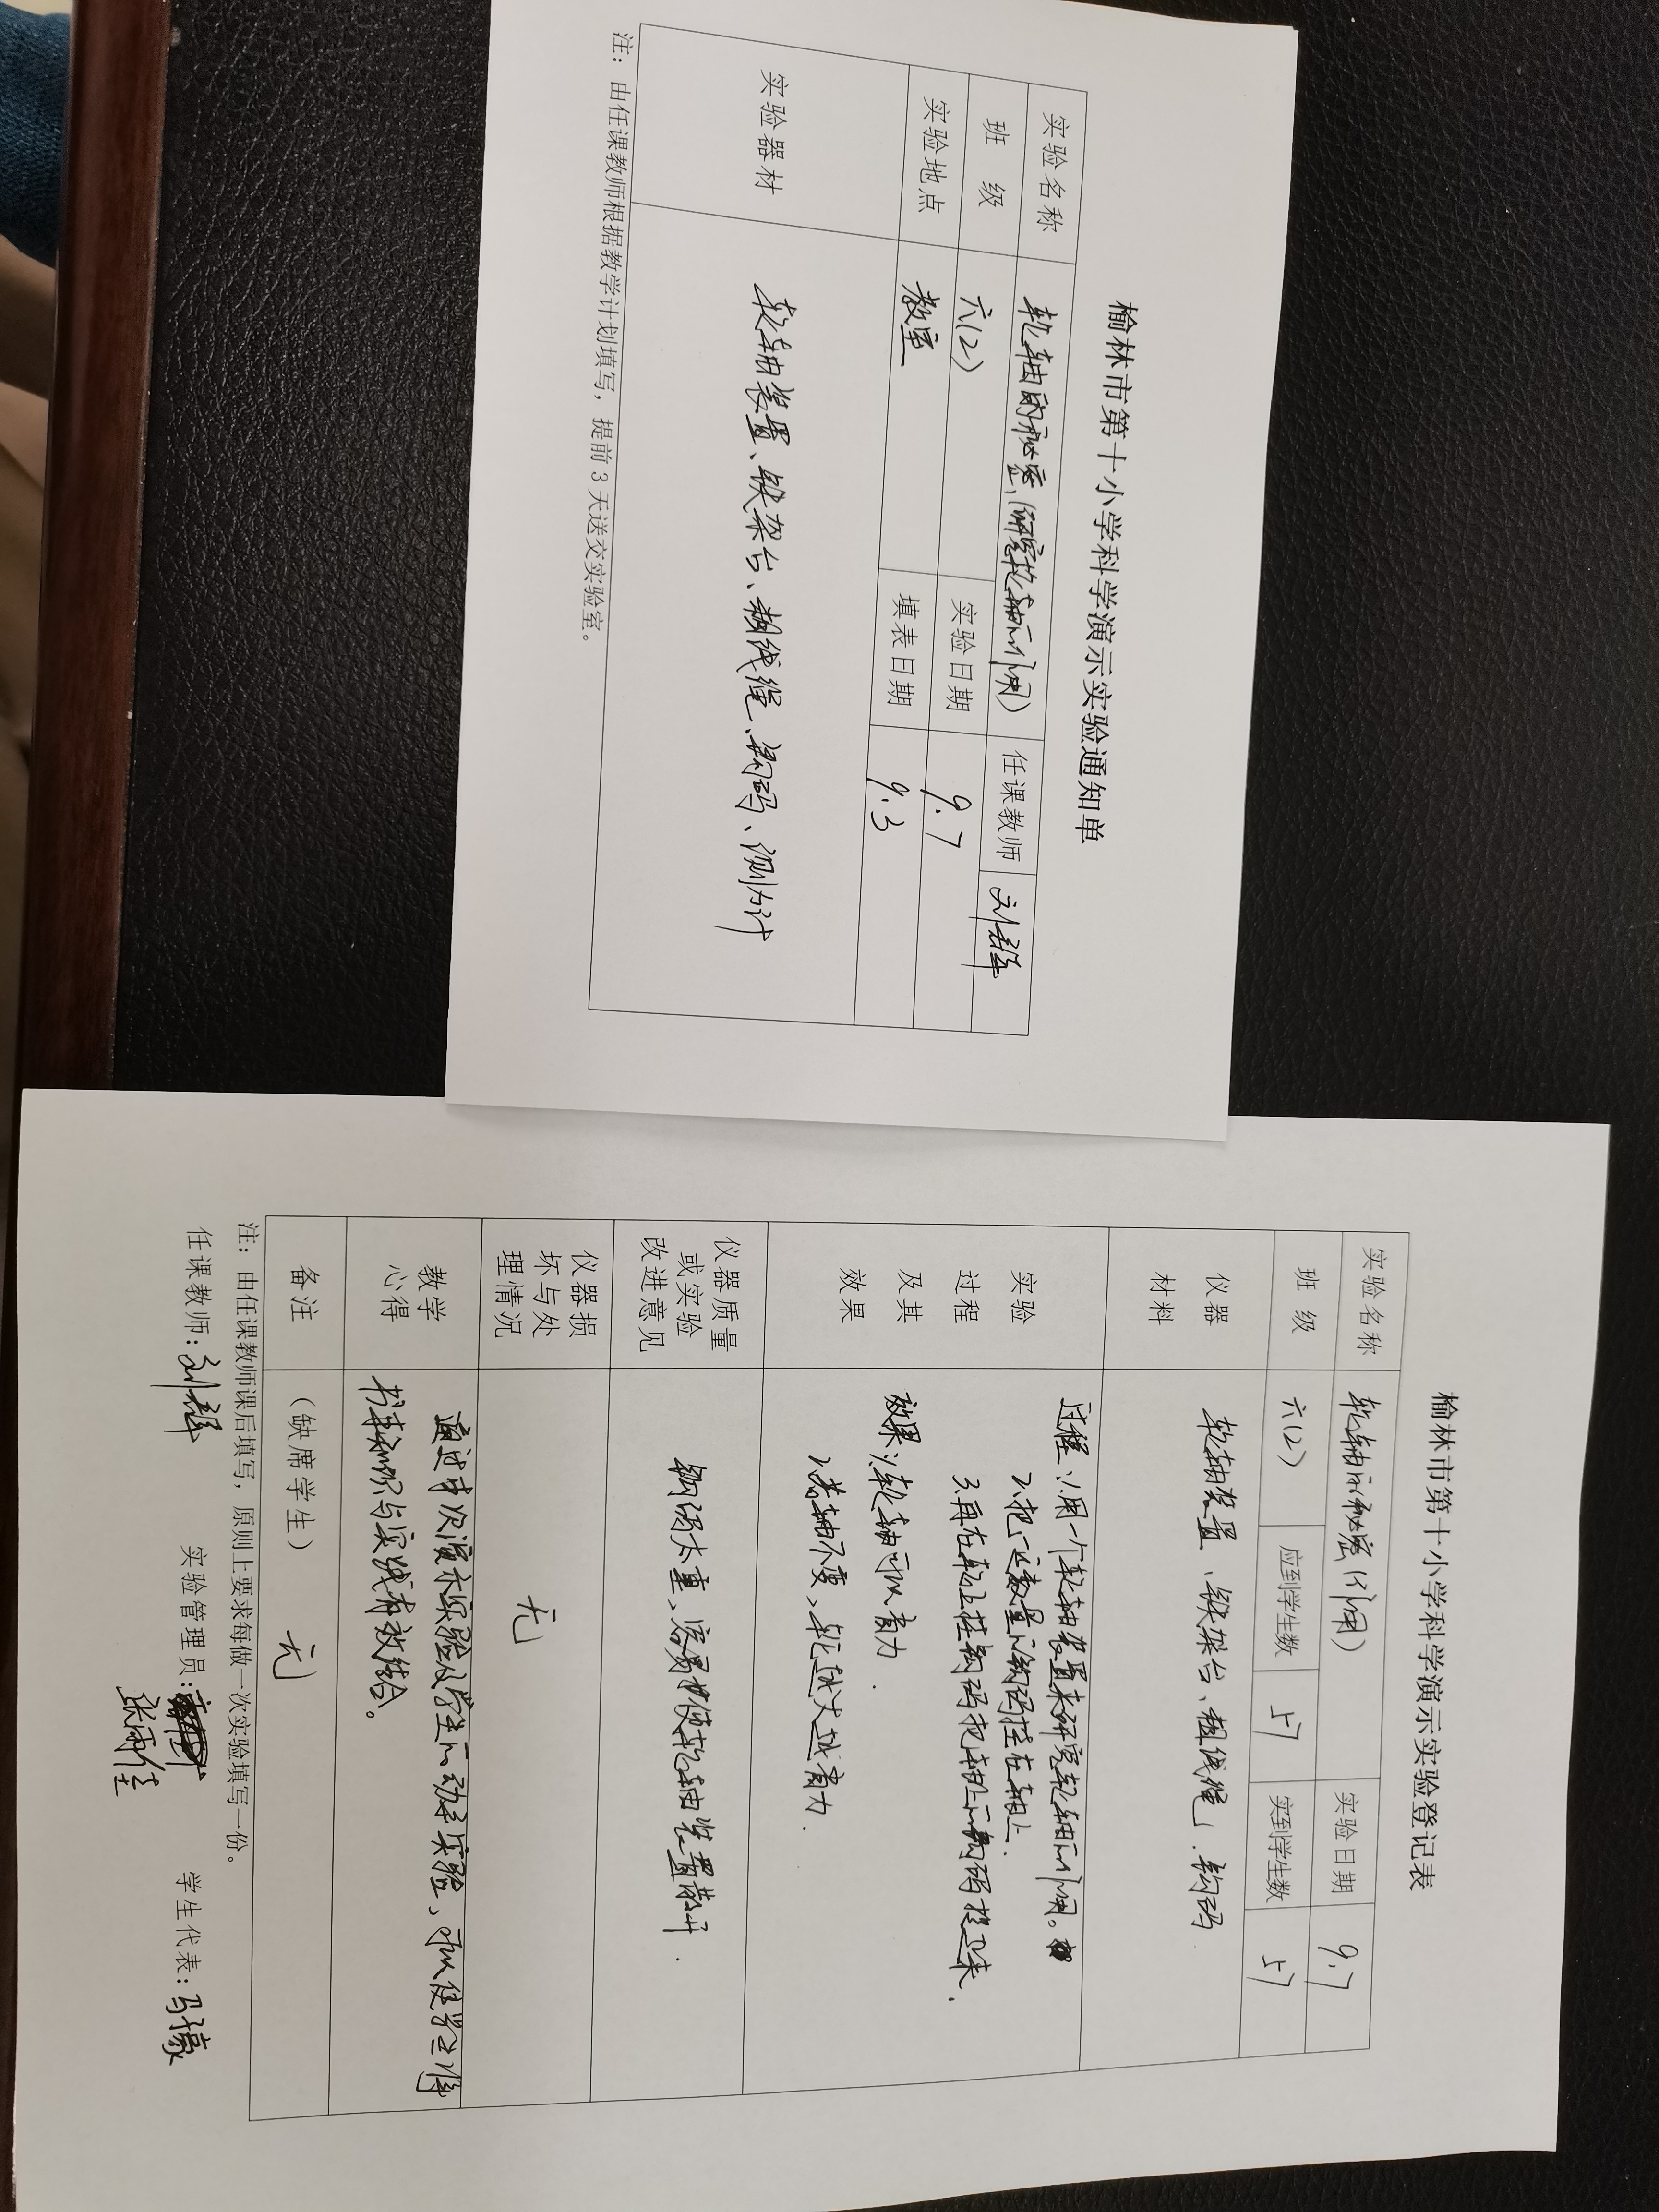 榆林市第十小学科学演示实验通知单
实验名称 轮轴的秘密(研究轮轴的作用) 任课教师 刘
班 级 六(2) 实验日期 9.7
实验地点 教室 填表日期 9.3
实验器材 轮轴装置、铁架台、粗线绳、钩码、测力计
注：由任课教师根据教学计划填写，提前3天送交实验室。
榆林市第十小学科学演示实验登记表
实验名称 轮轴的秘密(作用) 实验日期 9.7
班 级 六(2) 应到学生数 57 实到学生数 57
仪器
材料
轮轴装置、铁架台、粗线绳、钩码
实验
过程
及其
效果
过程:1.用一个轮轴装置来研究轮轴的作用。
2.把一定数量的钩码挂在轴上.
3.再在轮上挂钩码把轴上的钩码提起来.
效果:1.轮轴可以省力.
2.若轴不变,轮越大越省力.
仪器质量
或实验
改进意见
钩码太重,容易使轮轴装置散开.
仪器损
坏与处
理情况
无
教学
心得
通过本次演示实验及学生的动手实验,可以使学生将
书本知识与实践有效结合。
备注 (缺席学生) 无
注：由任课教师课后填写，原则上要求每做一次实验填写一份。
任课教师:刘 实验管理员: 学生代表:马
张雨佳